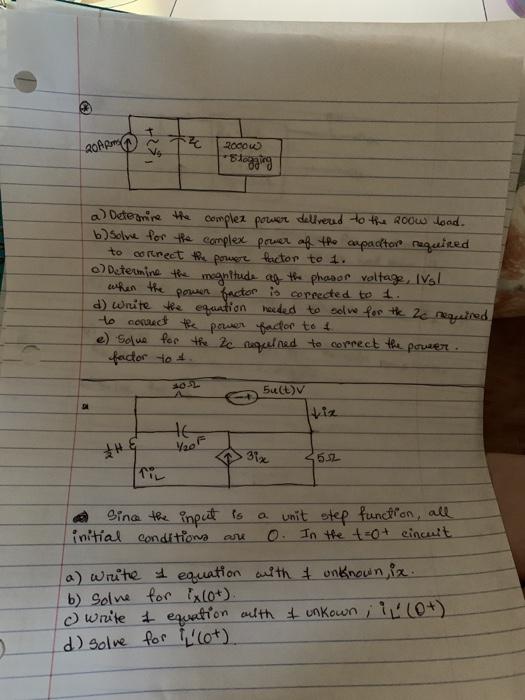 20ARMS
+
Vs
-
Zc
2000W
.8 lagging
a) Determine the complex power delivered to the 200W load.
b) Solve for the complex power of the capacitor required
to correct the power factor to 1.
c) Determine the magnitude of the phasor voltage, |Vs|
when the power factor is corrected to 1.
d) Write the equation needed to solve for the Zc required
to correct the power factor to 1.
e) Solve for the Zc required to correct the power
factor to 1.
5u(t)V
- +
↓ix
1/2 H
1/20 F
3ix
5Ω
↑iL
Since the input is a unit step function, all
initial conditions are 0. In the t=0+ circuit
a) Write 1 equation with 1 unknown, ix.
b) Solve for ix(0+).
c) Write 1 equation with 1 unkown ; iL'(0+)
d) Solve for iL'(0+)